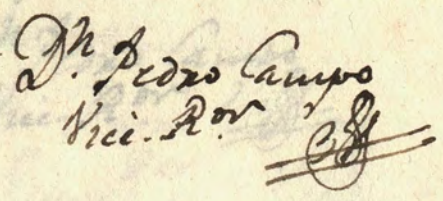 Dⁿ. Pedro Campo
Vice-Rᵒʳ.